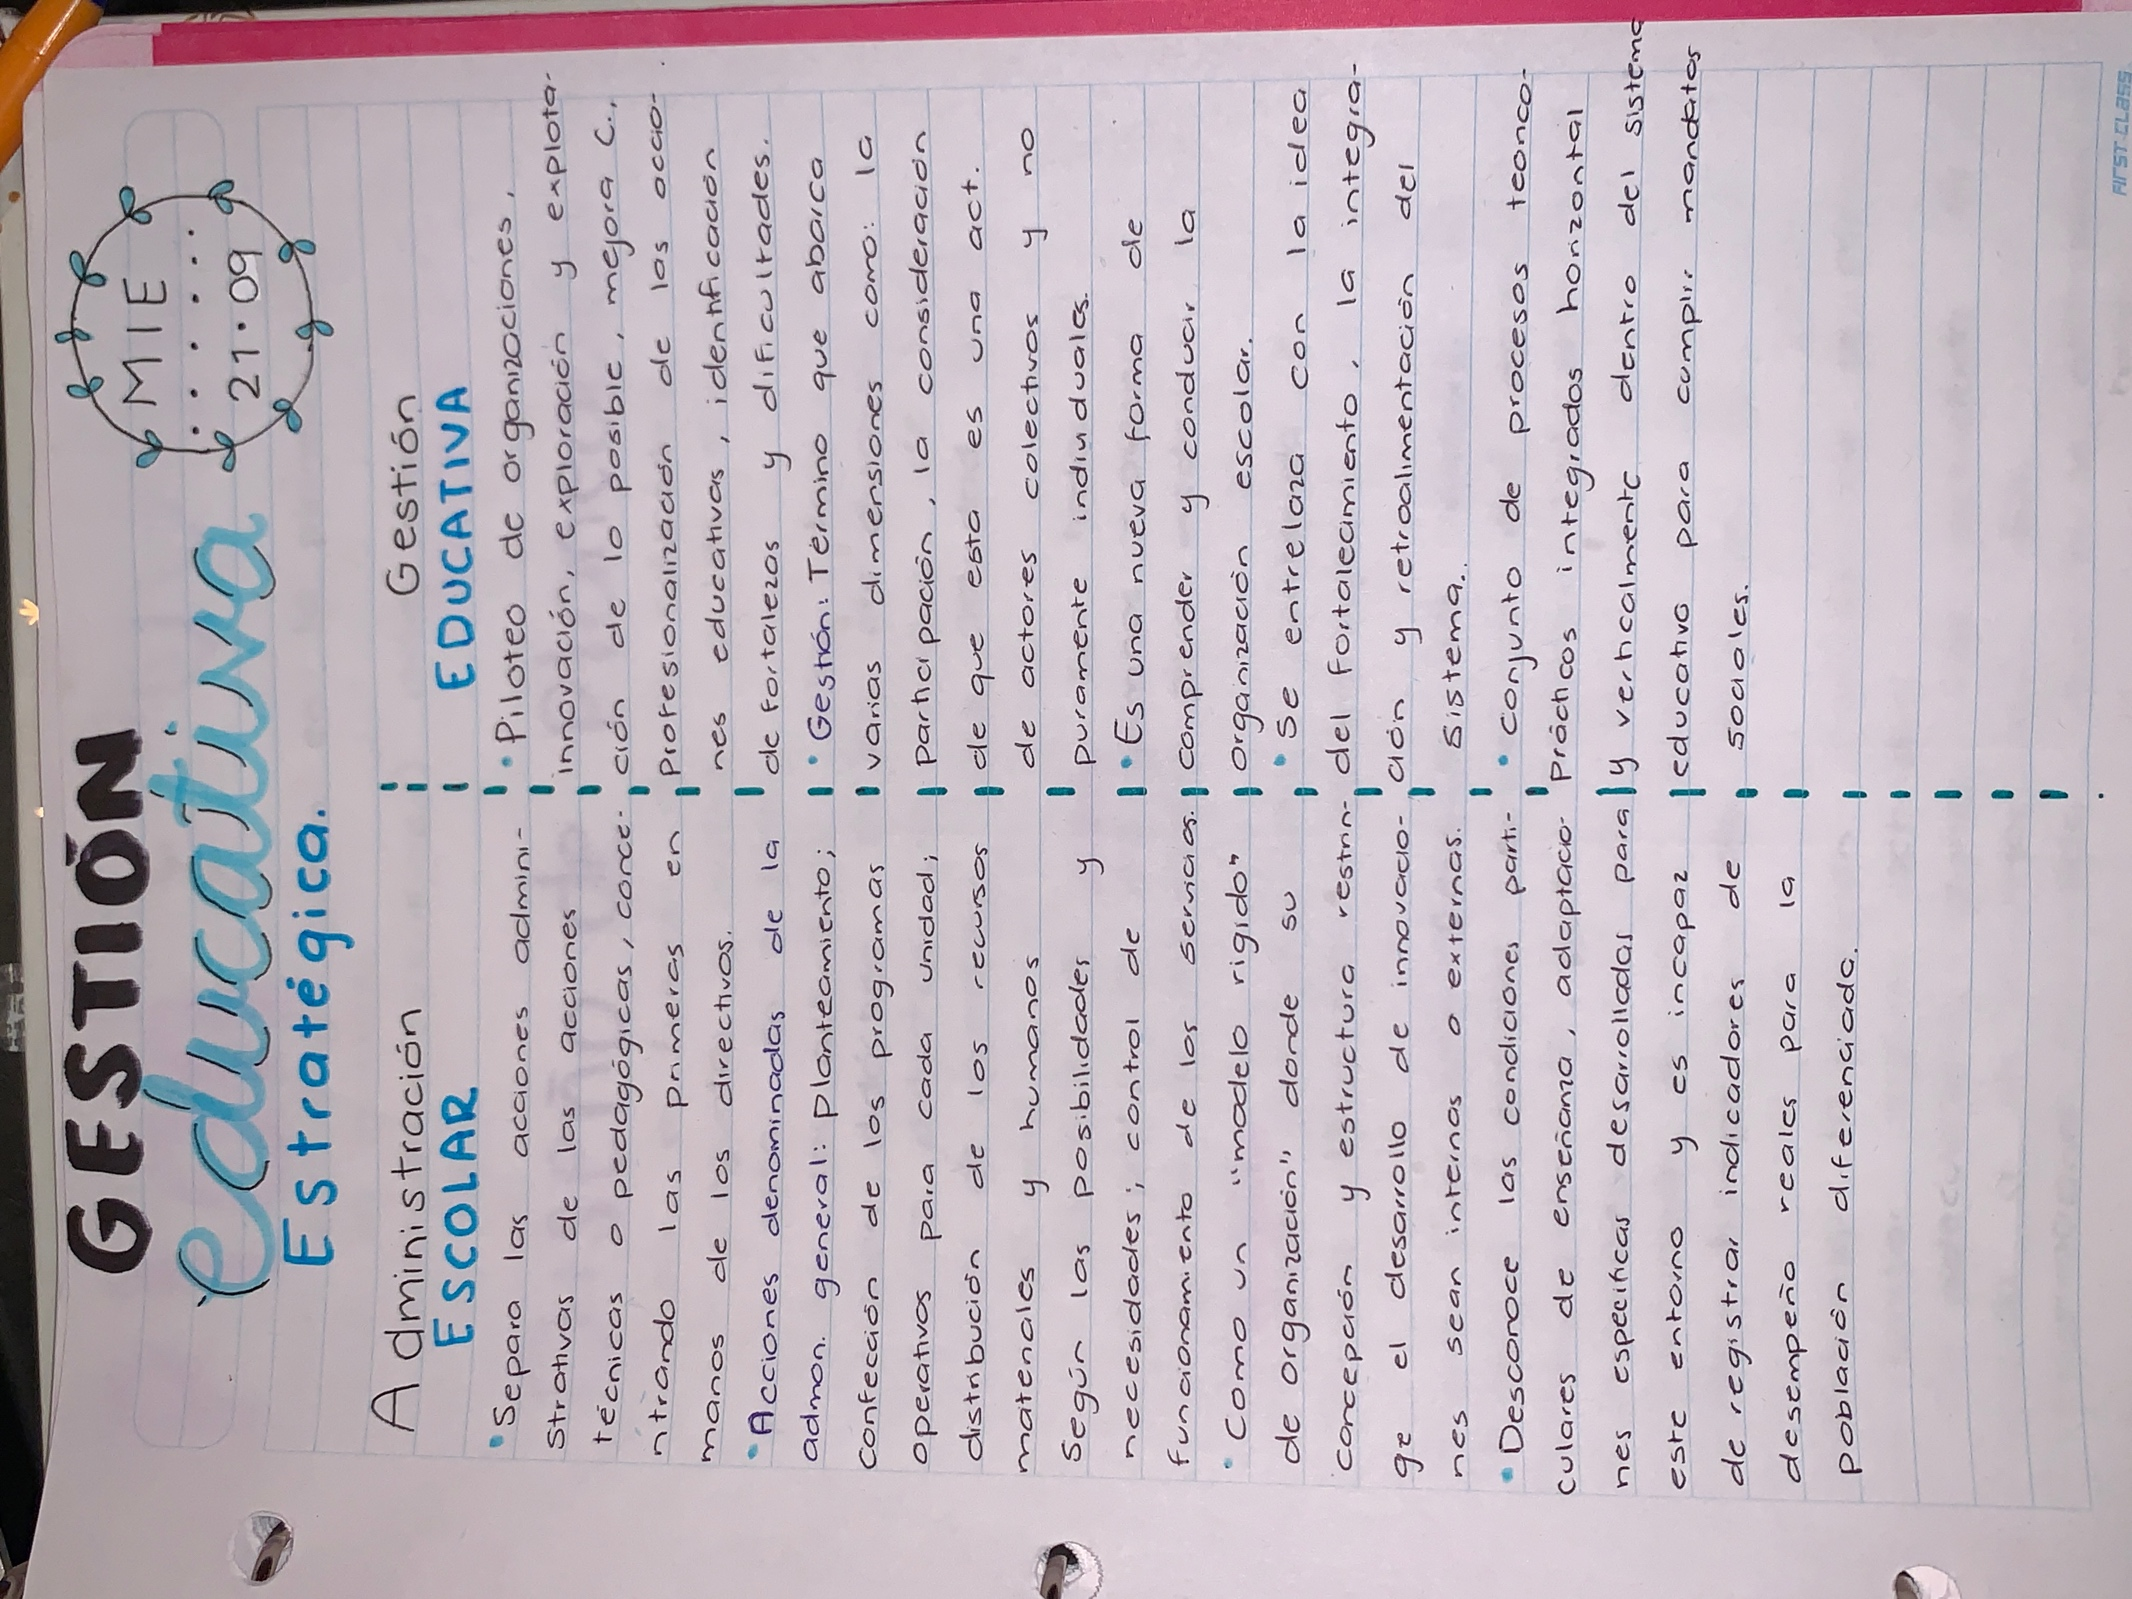 GESTIÓN
educativa
Estratégica.
MIE
21·09
Administración
ESCOLAR
• Separa las acciones admini-
strativas de las acciones
técnicas o pedagógicas, conce-
ntrando las primeras en
manos de los directivos.
• Acciones denominadas de la
admon. general: planteamiento;
confección de los programas
operativos para cada unidad;
distribución de los recursos
materiales y humanos
según las posibilidades y
necesidades; control de
funcionamiento de los servicios.
• Como un "modelo rigido"
de organización" donde su
concepción y estructura restrin-
ge el desarrollo de innovacio-
nes sean internas o externas.
• Desconoce las condiciones parti-
culares de enseñanza, adaptacio-
nes especificas desarrolladas para
este entorno y es incapaz
de registrar indicadores de
desempeño reales para la
población diferenciada.
Gestión
EDUCATIVA
• Piloteo de organizaciones,
innovación, exploración y explota-
ción de lo posible, mejora C.,
profesionalización de las accio-
nes educativas, identificación
de fortalezas y dificultrades.
• Gestión: Término que abarca
varias dimensiones como: la
participación, la consideración
de que esta es una act.
de actores colectivos y no
puramente individuales.
• Es una nueva forma de
comprender y conducir la
organización escolar.
• Se entrelaza con la idea
del fortalecimiento, la integra-
ción y retroalimentación del
sistema.
• conjunto de procesos teorico-
prácticos integrados horizontal
y verticalmente dentro del sistema
educativo para cumplir mandatos
sociales.
FIRST CLASS